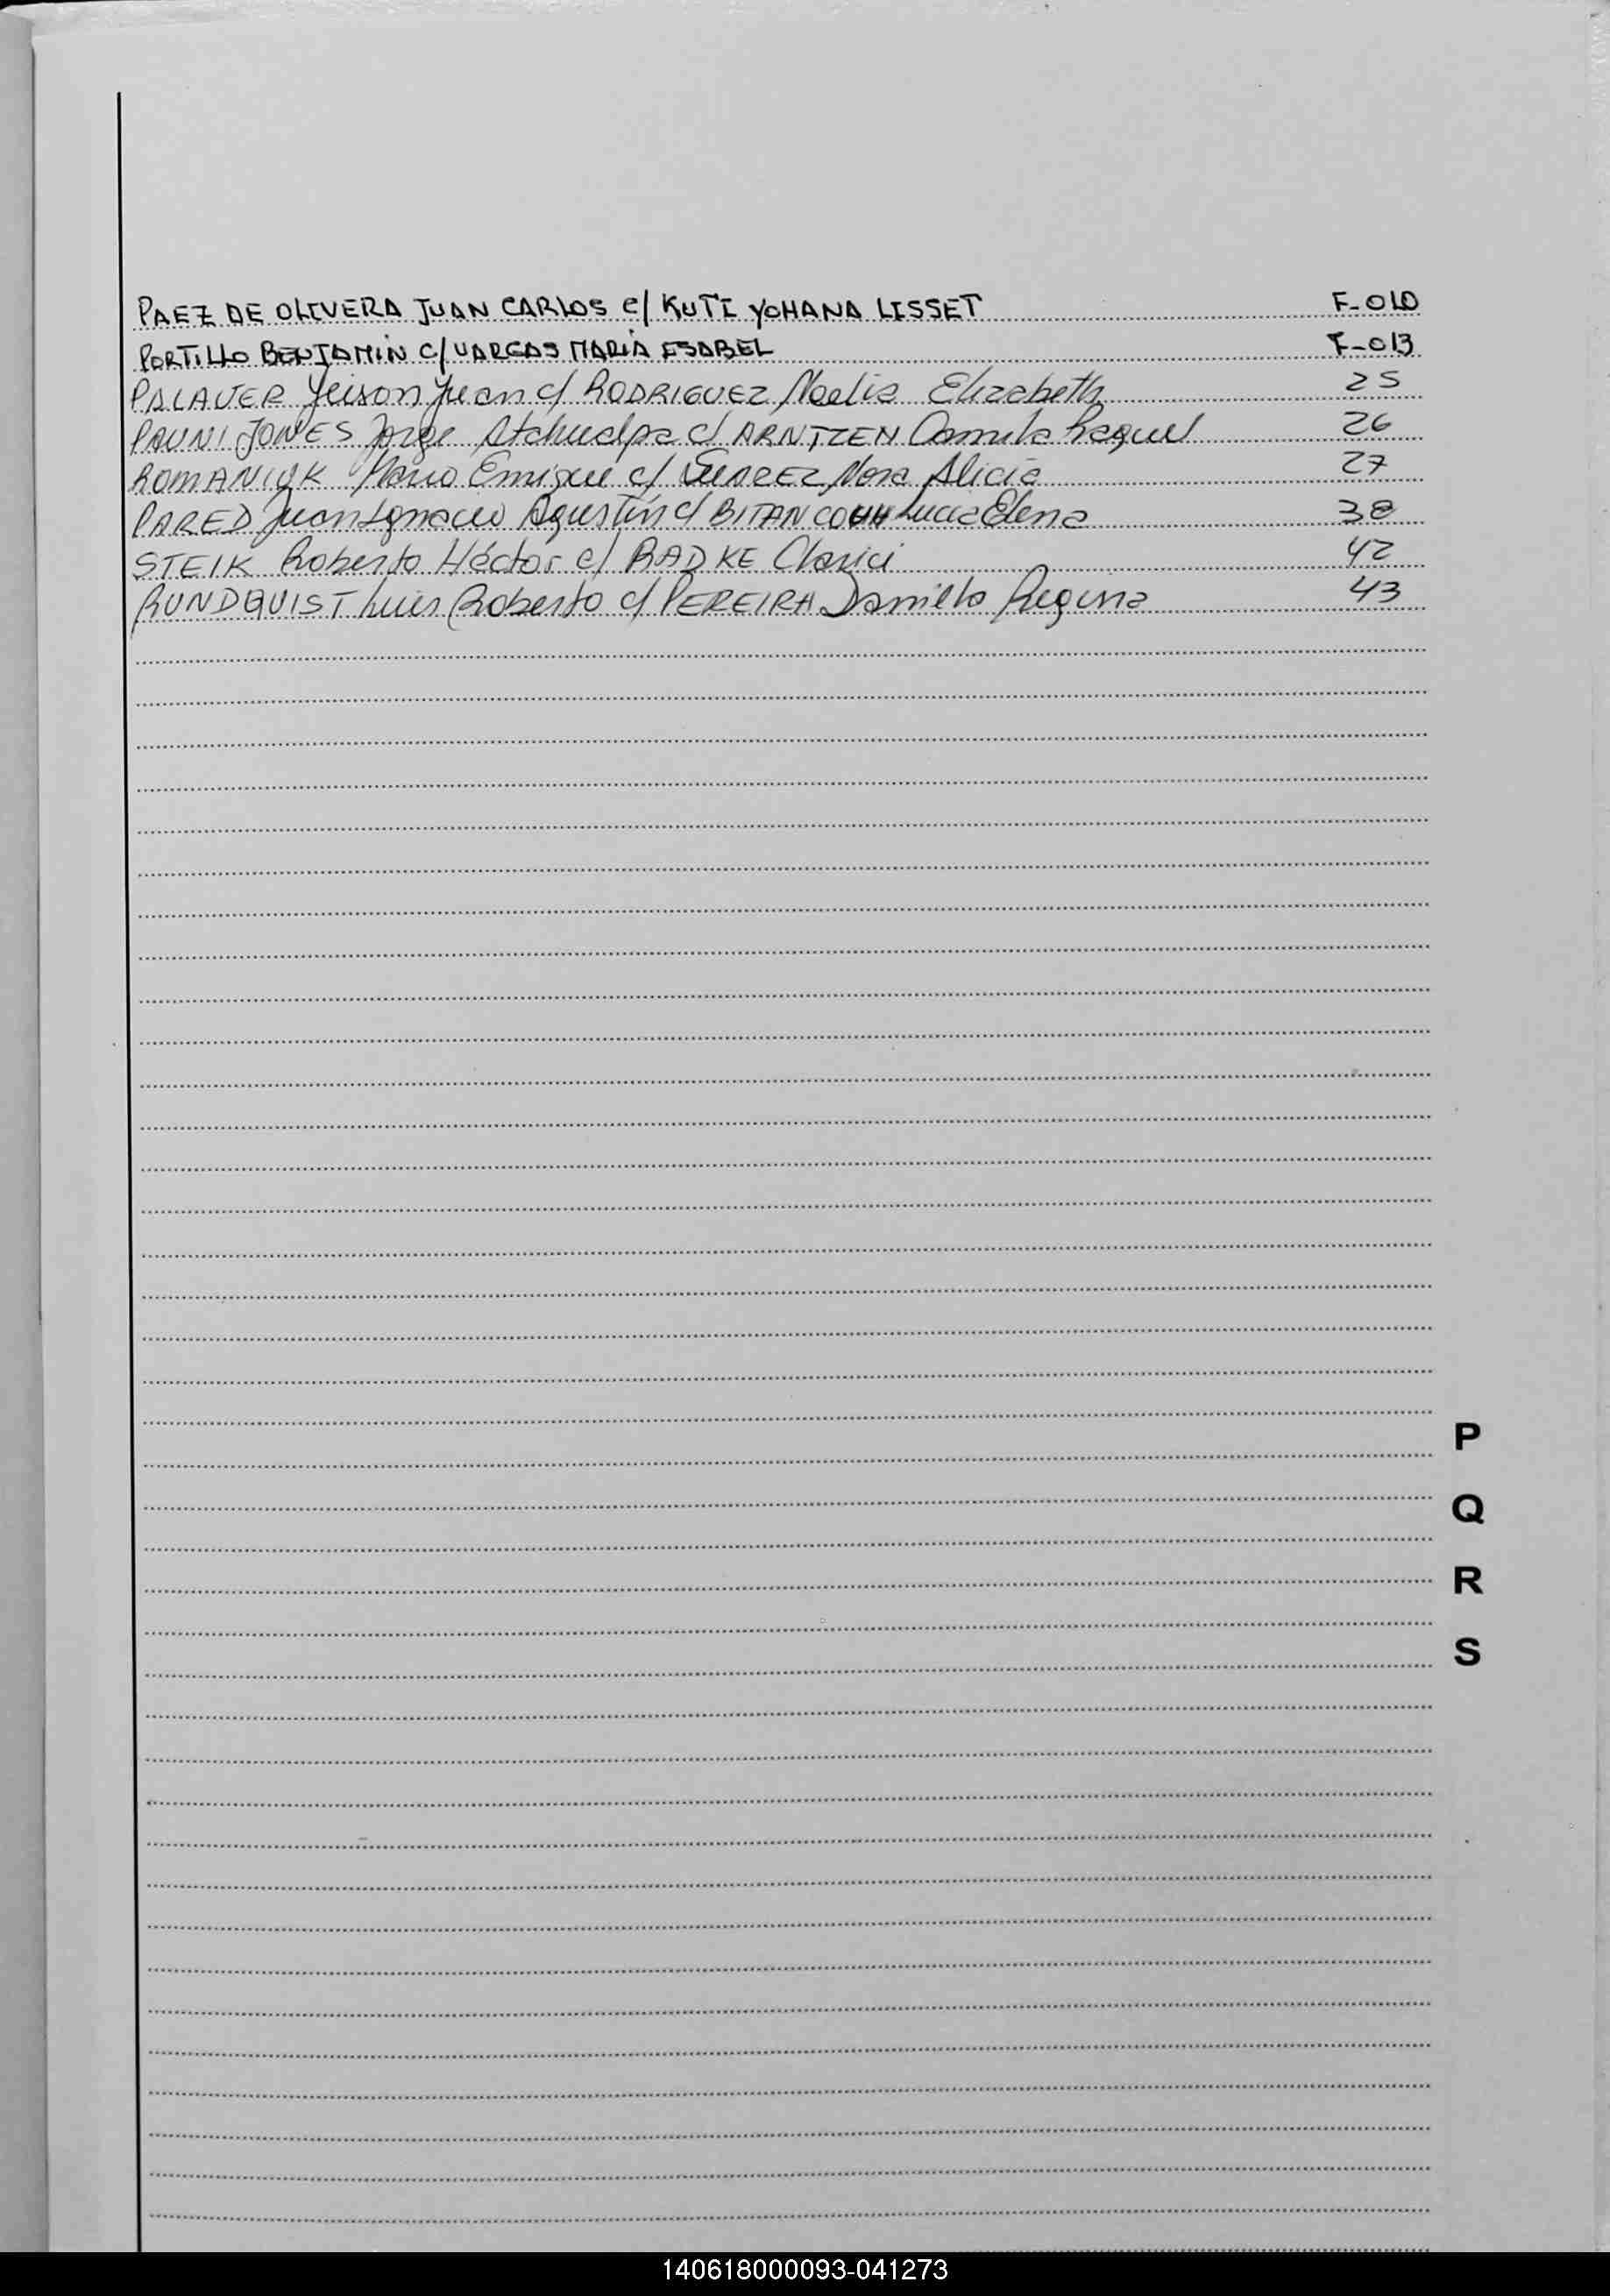 PAEZ DE OLIVERA JUAN CARLOS c/ KUTI YOHANA LISSET F-010
PORTILLO BENJAMIN C/ VARGAS MARIA ISABEL F-013
PALAVER Yeison Juan c/ RODRIGUEZ Noelia Elizabeth 25
PAUNI JONES Jorge Atahualpa c/ ARNTZEN Camila Raquel 26
ROMANIUK Mario Enrique c/ SUAREZ Nora Alicia 27
PARED Juan Ignacio Agustín c/ BITAN Lucia Elena 38
STEIK Roberto Héctor c/ RADKE Clarici 42
RUNDQUIST Luis Roberto c/ PEREIRA Regina 43
P
Q
R
S
140618000093-041273